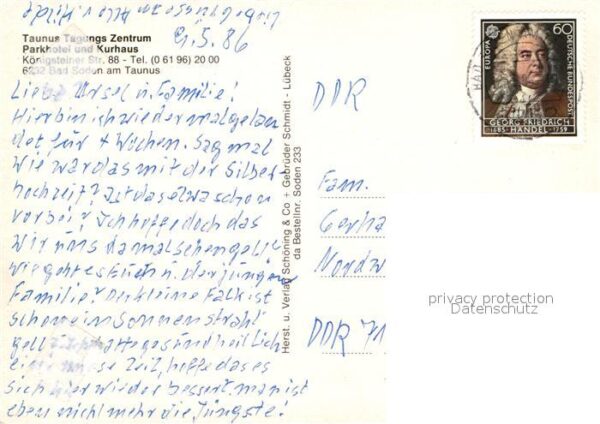 Taunus Tagungs Zentrum
Parkhotel und Kurhaus
Königsteiner Str. 88 - Tel. (0 61 96) 20 00
6232 Bad Soden am Taunus
9.5.86
Liebe Ursel u. Familie!
Hier bin ich wieder mal gelan
det für 4 Wochen. Sag mal
wie war das mit der Silber
hochzeit? Ist das etwa schon
vorbei? Ich hoffe doch das
wir uns da mal sehen gell!
Wie geht es Euch u. der jungen
Familie? Der kleine Falk ist
schon ein Sonnenstrahl
gell? Ich hatte gesundheitlich
eine Zeit, hoffe das es
sich hier wieder bessert. man ist
eben nicht mehr die Jüngste!
Herst. u. Verlag Schöning & Co + Gebrüder Schmidt - Lübeck
da Bestellnr. Soden 233
EUROPA
60
DEUTSCHE BUNDESPOST
GEORG FRIEDRICH
1685 HÄNDEL 1759
DDR
Fam.
Nordw
DDR 71
privacy protection
Datenschutz